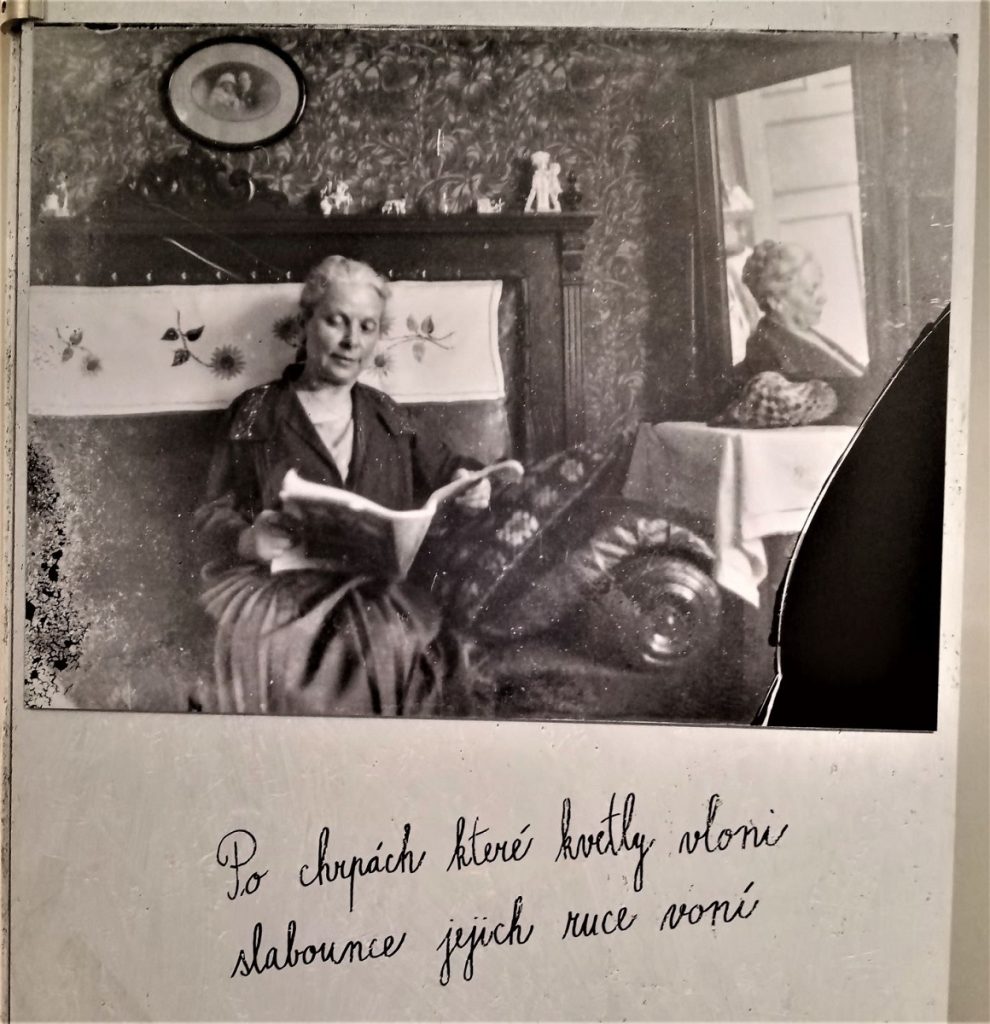 Po chrpách které kvetly vloni
slabounce jejich ruce voní